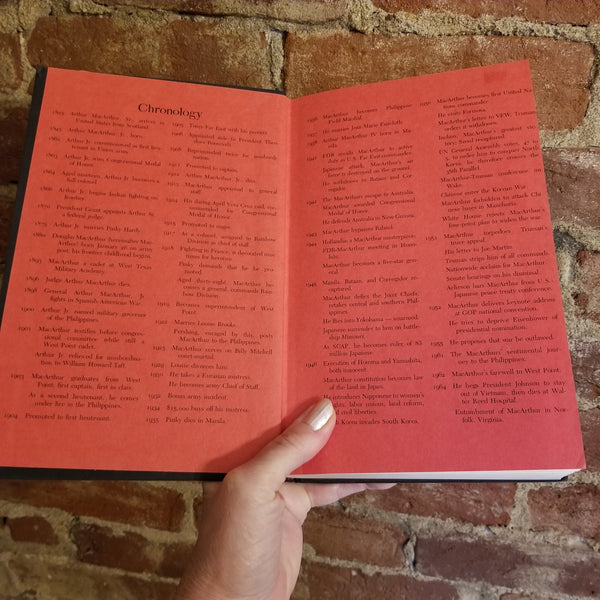 Chronology
1825 Arthur MacArthur, Sr., arrives in
United States from Scotland.
1845 Arthur MacArthur Jr. born.
1862 Arthur Jr. commissioned as first lieu-
tenant in Union army.
1863 Arthur Jr. wins Congressional Medal
of Honor.
1864 Aged nineteen, Arthur Jr. becomes a
full colonel.
1866 Arthur Jr. begins Indian fighting on
frontier.
1870 President Grant appoints Arthur Sr.
a federal judge.
1875 Arthur Jr. marries Pinky Hardy.
1880 Douglas MacArthur (hereinafter Mac-
Arthur) born January 26; in army
post; his frontier childhood begins.
1893 MacArthur a cadet at West Texas
Military Academy.
1896 Judge Arthur MacArthur dies.
1898 General Arthur MacArthur, Jr.
fights in Spanish-American War.
1900 Arthur Jr. named military governor
of the Philippines.
1901 MacArthur testifies before congres-
sional committee while still a
West Point cadet.
Arthur Jr. relieved for insubordina-
tion by William Howard Taft.
1903 MacArthur graduates from West
Point, first captain, first in class.
As a second lieutenant, he comes
under fire in the Philippines.
1904 Promoted to first lieutenant.
1905 Tours Far East with his parents.
1906 Appointed aide to President Theo-
dore Roosevelt.
1908 Reprimanded twice for insubordi-
nation.
1911 Promoted to captain.
1912 Arthur MacArthur, Jr., dies.
1913 MacArthur appointed to general
staff.
1914 His daring April Vera Cruz raid; rec-
ommended for Congressional
Medal of Honor.
1915 Promoted to major.
1917 As a colonel, assigned to Rainbow
Division as chief of staff.
1918 Fighting in France, is decorated nine
times for heroism.
Pinky demands that he be pro-
moted.
Aged thirty-eight, MacArthur be-
comes a general, commands Rain-
bow Division.
1919 Becomes superintendent of West
Point.
1922 Marries Louise Brooks.
Pershing, enraged by this, posts
MacArthur to the Philippines.
1925 MacArthur serves on Billy Mitchell
court-martial.
1929 Louise divorces him.
1930 He takes a Eurasian mistress.
He becomes army Chief of Staff.
1932 Bonus army incident.
1934 $15,000 buys off his mistress.
1935 Pinky dies in Manila.
1936 MacArthur becomes Philippine
Field Marshal.
1937 He marries Jean Marie Faircloth.
1938 Arthur MacArthur IV born in Ma-
nila.
1941 FDR recalls MacArthur to active
duty as U.S. Far East commander.
Japanese attack. MacArthur's air
force is destroyed on the ground.
He withdraws to Bataan and Cor-
regidor.
1942 The MacArthurs escape to Australia.
MacArthur awarded Congressional
Medal of Honor.
He defends Australia in New Guinea.
1943 MacArthur bypasses Rabaul.
1944 Hollandia a MacArthur masterpiece.
FDR-MacArthur meeting in Hono-
lulu.
MacArthur becomes a five-star gen-
eral.
1945 Manila, Bataan, and Corregidor re-
captured.
MacArthur defies the Joint Chiefs,
retakes central and southern Phil-
ippines.
He flies into Yokohama — unarmed.
Japanese surrender to him on battle-
ship Missouri.
As SCAP, he becomes ruler of 83
million Japanese.
1946 Execution of Homma and Yamashita,
both innocent.
MacArthur constitution becomes law
of the land in Japan.
He introduces Nipponese to women's
rights, labor unions, land reform,
and civil liberties.
North Korea invades South Korea.
1950 MacArthur becomes first United Na-
tions commander.
He visits Formosa.
MacArthur's letter to VFW. Truman
orders it withdrawn.
Inchon, MacArthur's greatest vic-
tory; Seoul recaptured.
UN General Assembly votes, 47 to
5, to order him to conquer North
Korea, and he therefore crosses
38th Parallel.
MacArthur-Truman conference on
Wake.
Chinese enter the Korean War.
MacArthur forbidden to attack Chi-
nese bases in Manchuria.
White House rejects MacArthur's
four-point plan to widen the war.
1951 MacArthur torpedoes Truman's
truce appeal.
His letter to Joe Martin.
Truman strips him of all commands.
Nationwide acclaim for MacArthur.
Senate hearings on his dismissal.
Acheson bars MacArthur from U.S.-
Japanese peace treaty confer-
ences.
1952 MacArthur delivers keynote address
at GOP national convention.
He tries to depose Eisenhower of
presidential nomination.
1955 He proposes that war be outlawed.
1961 The MacArthurs' sentimental jour-
ney to the Philippines.
1962 MacArthur's farewell to West Point.
1964 He begs President Johnson to stay
out of Vietnam, then dies at Wal-
ter Reed Hospital.
Entombment of MacArthur in Nor-
folk, Virginia.